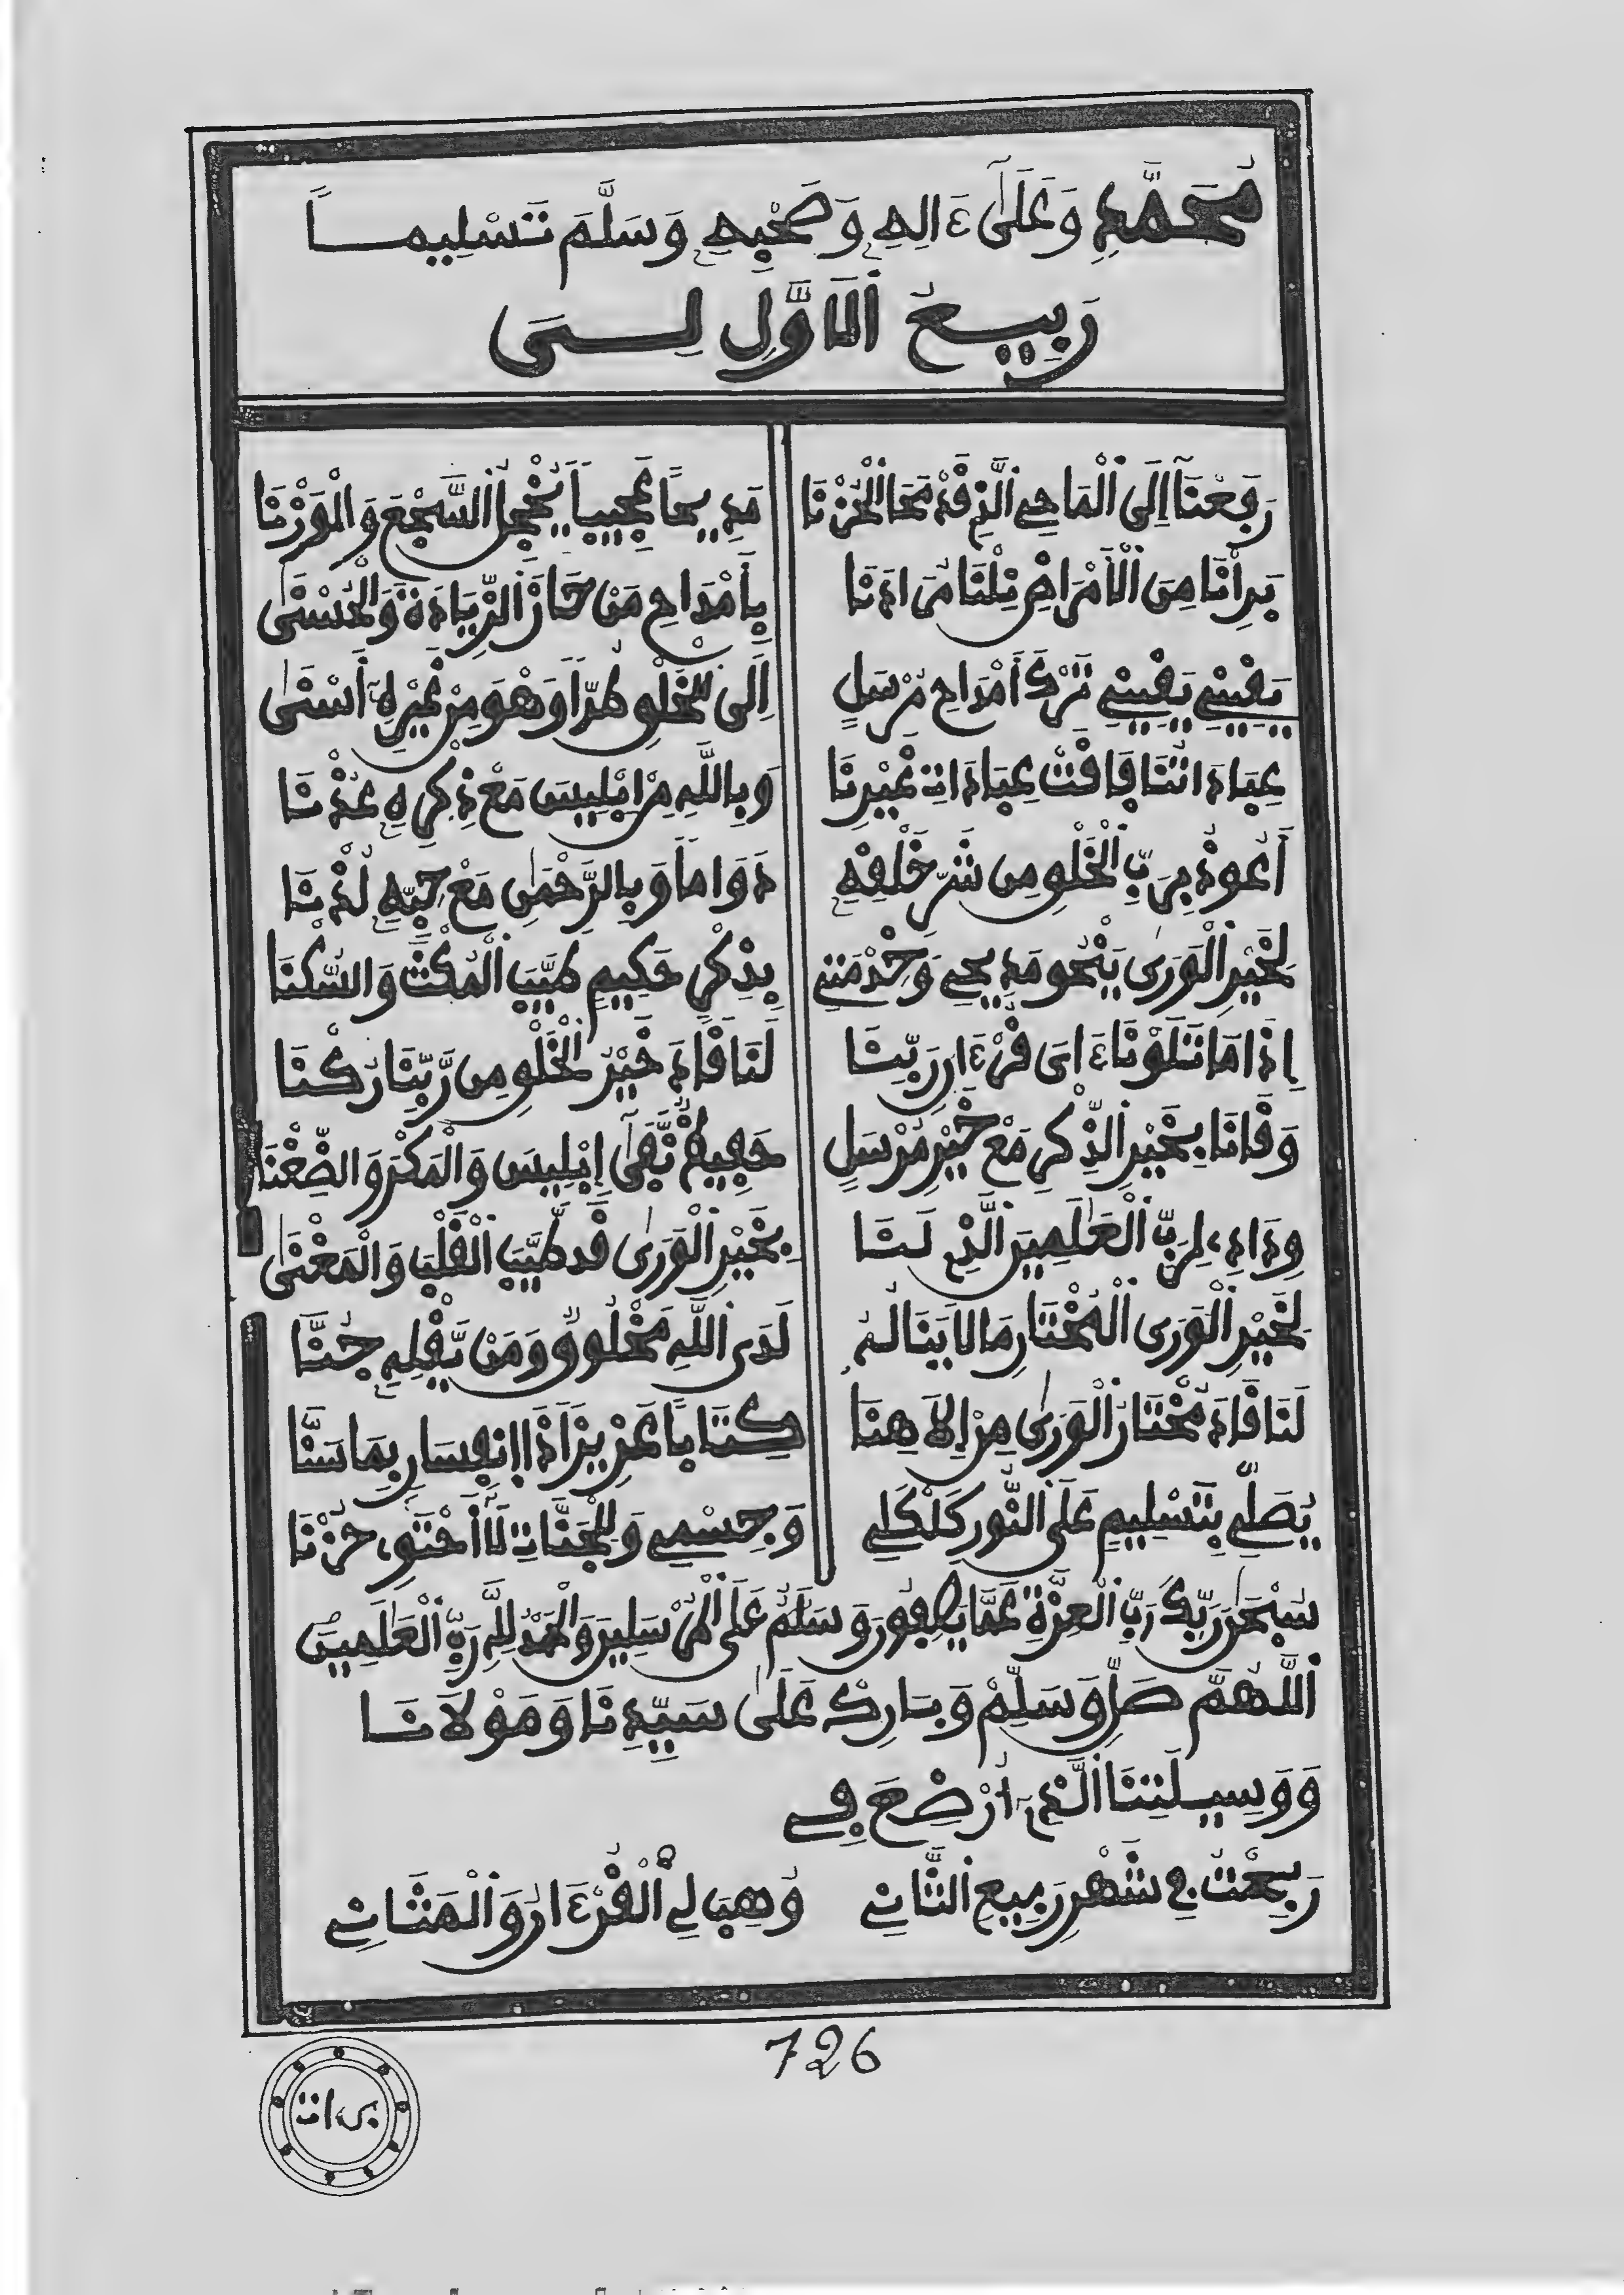 مُحَمَّدٍ وَعَلَىٰ ءَالِهِ وَصَحْبِهِ وَسَلِّمْ تَسْلِيمًا
رَبِيعُ الْأَوَّلِ لِى
رَفَعْنَا إِلَى الْمَاحِى الَّذِى قَدْ مَحَا الْحُزْنَا مَدِيحًا عَجِيبًا يُخْجِلُ السَّجْعَ وَالْوَزْنَا
بَرِأْنَا مِنَ الْأَمْرَاضِ نِلْنَا مُرَادَنَا بِأَمْدَاحِ مَنْ حَازَ الزِّيَادَةَ وَالْحُسْنَىٰ
يَقِينِى يَقِينِى تَرْكَ أَمْدَاحِ مُرْسَلٍ إِلَى الْخَلْقِ طُرًّا وَهْوَ مِنْ غَيْرِهِ أَسْنَىٰ
عِبَادَاتُنَا فَاقَتْ عِبَادَاتِ غَيْرِنَا وَبِاللَّهِ مِنْ إِبْلِيسَ مَعْ ذِكْرِهِ عُذْنَا
أَعُوذُ بِرَبِّ الْخَلْقِ مِن شَرِّ خَلْقِهِ دَوَامًا وَبِالرَّحْمَٰنِ مَعْ حِبِّهِ لُذْنَا
لِخَيْرِ الْوَرَىٰ يَنْحُو مَدِيحِى وَخِدْمَتِى بِذِكْرٍ حَكِيمٍ طَيَّبَ الْمُكْثَ وَالسُّكْنَا
إِذَا مَا تَلَوْنَا ءَاىَ قُرْءَانِ رَبِّنَا لَنَا قَادَ خَيْرُ الْخَلْقِ مِن رَّبِّنَا رُكْنَا
وَقَانَا بِخَيْرِ الذِّكْرِ مَعْ خَيْرِ مُرْسَلٍ حَفِيظٌ نَّفَىٰ إِبْلِيسَ وَالْمَكْرَ وَالضِّغْنَا
وِدَادِى لِرَبِّ الْعَٰلَمِينَ الَّذِى لَنَا بِخَيْرِ الْوَرَىٰ قَد طَيَّبَ الْقَلْبَ وَالْمَغْنَىٰ
لِخَيْرِ الْوَرَى الْمُخْتَارِ مَا لَا يَنَالُهُ لَدَى اللَّهِ مَخْلُوقٌ وَمَن يَّقْلِهِ جُنَّا
لَنَا قَادَ مُخْتَارُ الْوَرَىٰ مِنْ إِلَٰهِنَا كِتَابًا عَزِيزًا ذَا انْبِجَاسٍ بِمَا سَنَّا
يُصَلِّى بِتَسْلِيمٍ عَلَى النُّورِ كَلْكَلِى وَجِسْمِى وَلِلْجَنَّاتِ لَا أَحْتَوِى حُزْنَا
سُبْحَٰنَ رَبِّكَ رَبِّ الْعِزَّةِ عَمَّا يَصِفُونَ وَسَلَٰمٌ عَلَى الْمُرْسَلِينَ وَالْحَمْدُ لِلَّهِ رَبِّ الْعَٰلَمِينَ
اللَّهُمَّ صَلِّ وَسَلِّمْ وَبَارِكْ عَلَىٰ سَيِّدِنَا وَمَوْلَانَا
وَوَسِيلَتِنَا الَّذِى أُرْضِعَ فِى
رَبِحْتُ فِى شَهْرِ رَبِيعِ الثَّانِى وُهِبَ لِى الْقُرْءَانُ وَالْمَثَانِى
726